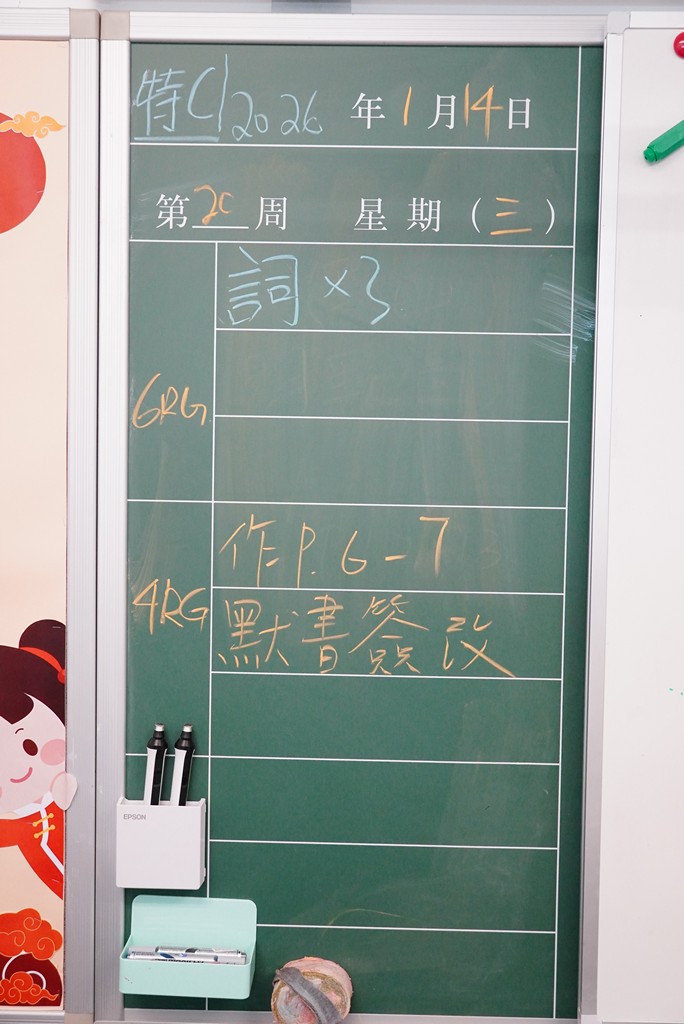 特C1 2026 年 1 月 14 日
第 20 周 星期（三）
詞×3
6RG
作 P. 6-7
4RG
默書簽改
EPSON